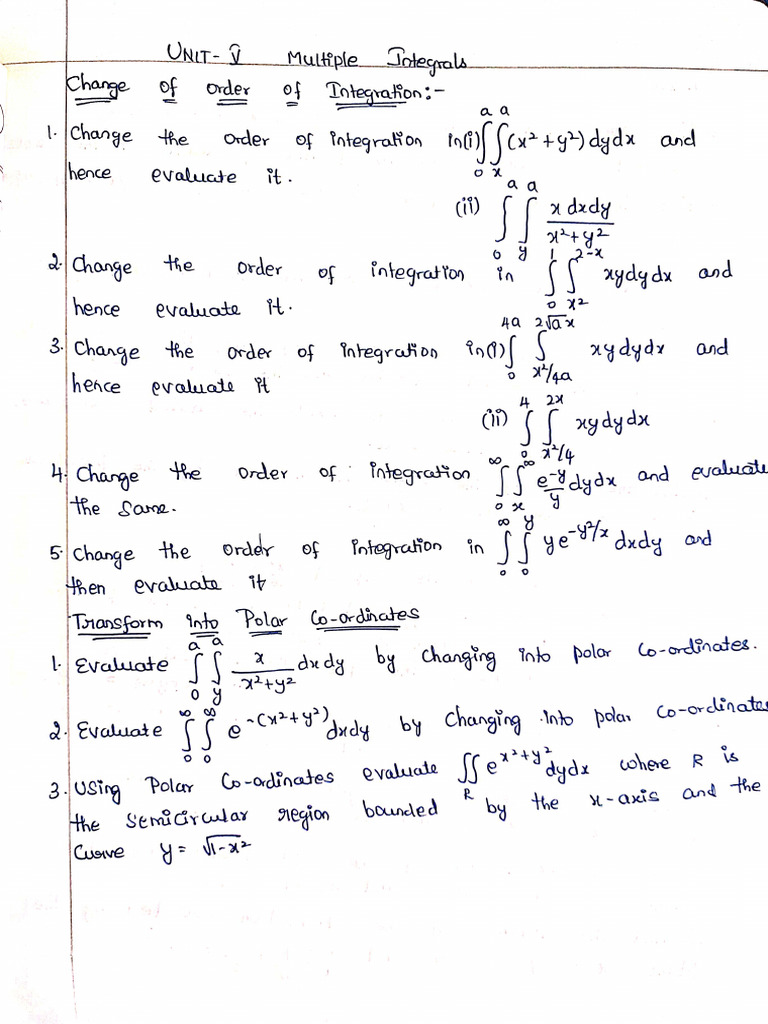 UNIT-V Multiple Integrals
Change of order of Integration:-
1. Change the order of integration in(i) ∫₀ᵃ ∫ₓᵃ (x² + y²) dy dx and
hence evaluate it.
(ii) ∫₀ᵃ ∫_y^a x dx dy / x² + y²
2. Change the order of integration in ∫₀¹ ∫_{x²}^{2-x} xy dy dx and
hence evaluate it.
3. Change the order of integration in(i) ∫₀^{4a} ∫_{x²/4a}^{2√a x} xy dy dx and
hence evaluate it
(ii) ∫₀⁴ ∫_{x²/4}^{2x} xy dy dx
4. Change the order of integration ∫₀^∞ ∫ₓ^∞ e^{-y}/y dy dx and evaluate
the same.
5. Change the order of integration in ∫₀^∞ ∫₀^y y e^{-y²/x} dx dy and
then evaluate it
Transform into Polar Co-ordinates
1. Evaluate ∫₀ᵃ ∫_y^a x / x² + y² dx dy by changing into polar co-ordinates.
2. Evaluate ∫₀^∞ ∫₀^∞ e^{-(x² + y²)} dx dy by changing into polar co-ordinates
3. Using Polar Co-ordinates evaluate ∬_R e^{x² + y²} dy dx where R is
the semicircular region bounded by the x-axis and the
curve y = √1-x²